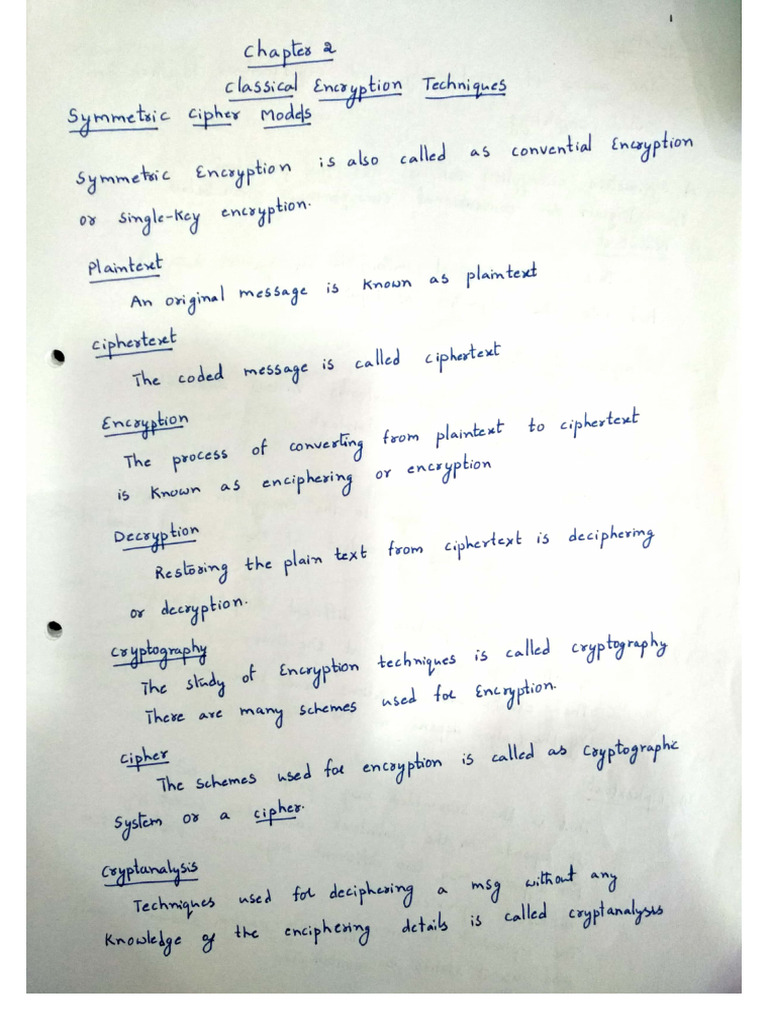 1
Chapter 2
Classical Encryption Techniques
Symmetric Cipher Models
Symmetric Encryption is also called as convential Encryption
or single-key encryption.
Plaintext
An original message is known as plaintext
Ciphertext
The coded message is called ciphertext
Encryption
The process of converting from plaintext to ciphertext
is known as enciphering or encryption
Decryption
Restoring the plain text from ciphertext is deciphering
or decryption.
Cryptography
The study of Encryption techniques is called cryptography
There are many schemes used for Encryption.
Cipher
The schemes used for encryption is called as cryptographic
System or a cipher.
Cryptanalysis
Techniques used for deciphering a msg without any
knowledge of the enciphering details is called cryptanalysis